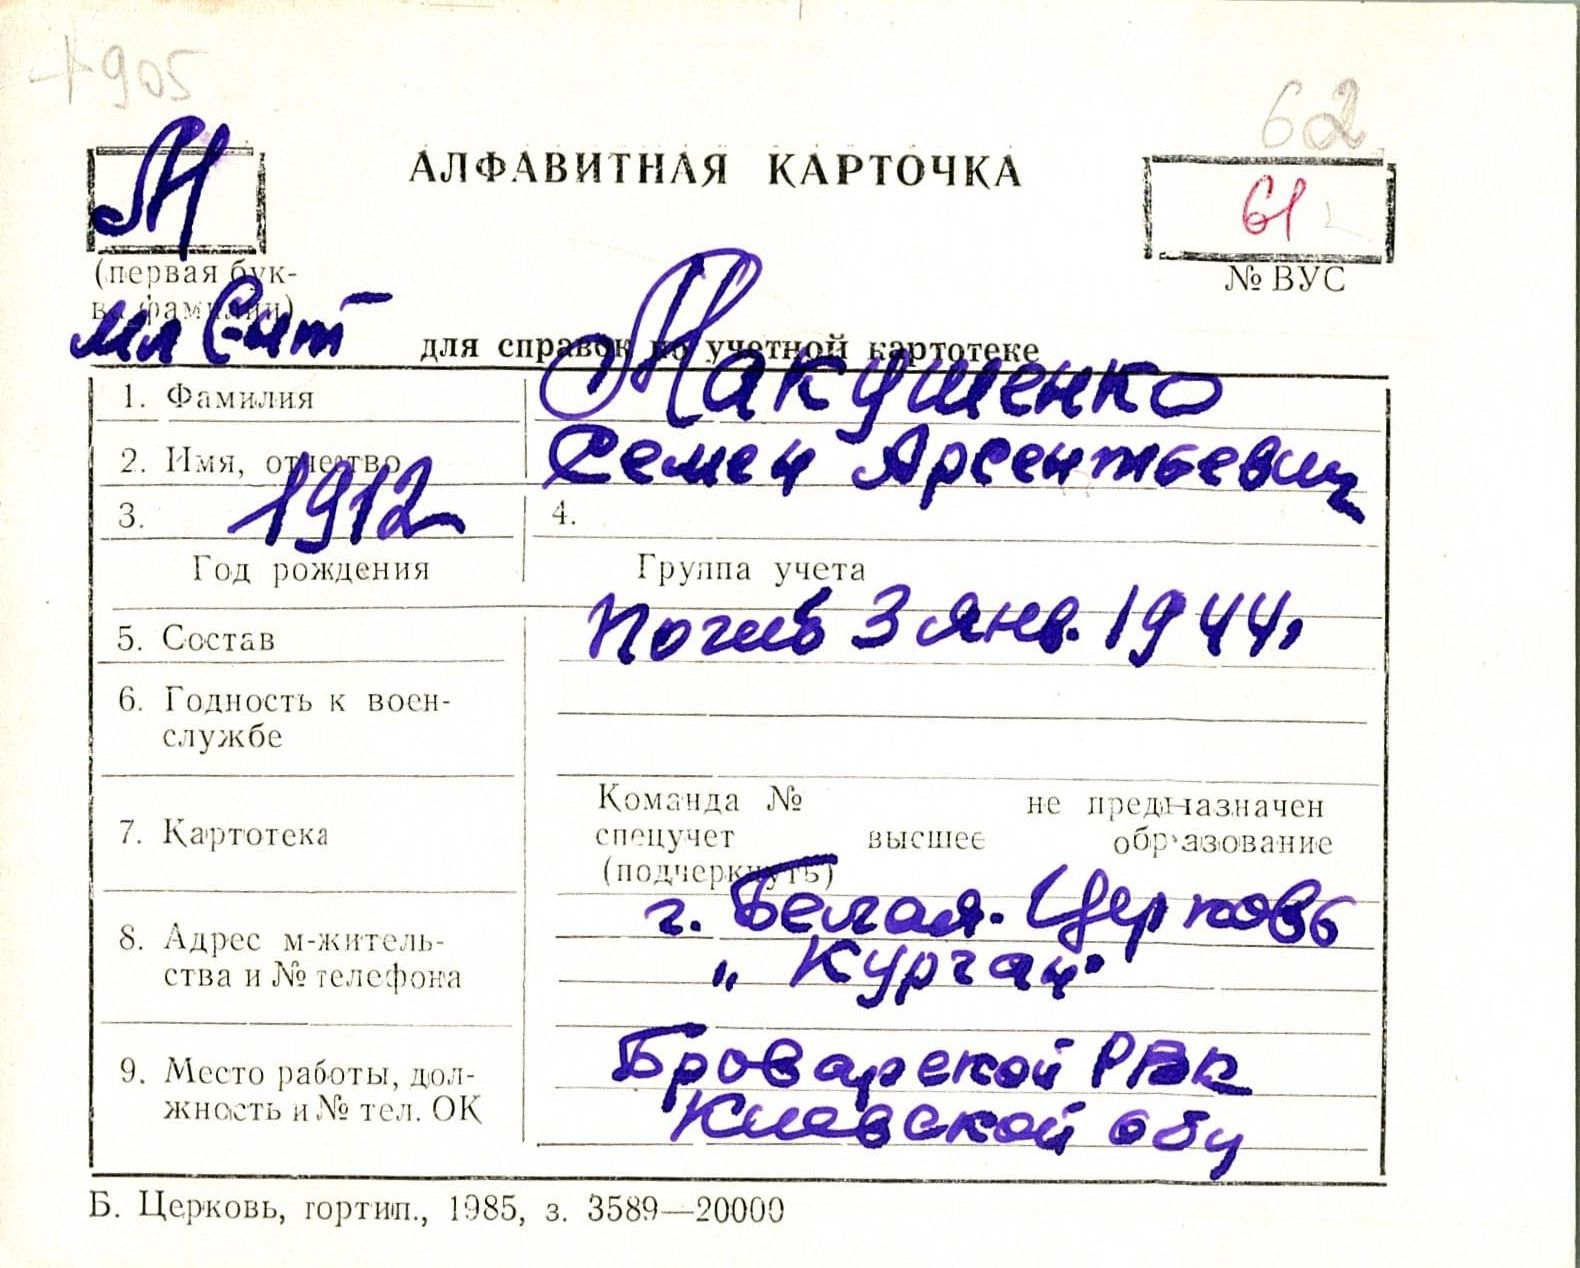 +905
62
М
АЛФАВИТНАЯ КАРТОЧКА
61
(первая бук-
ва фамилии)
№ ВУС
мл С-нт
для справок по учетной картотеке
1. Фамилия Макушенко
2. Имя, отчество Семен Арсентьевич
3. 1912 4.
Год рождения Группа учета
5. Состав Погиб 3 янв. 1944,
6. Годность к воен-
службе
7. Картотека
Команда № не предназначен
спецучет высшее образование
(подчеркнуть)
8. Адрес м-житель-
ства и № телефона
г. Белая-Церковь
„ Курган"
9. Место работы, дол-
жность и № тел. ОК
Броварской РВК
Киевской обл
Б. Церковь, гортип., 1985, з. 3589—20000